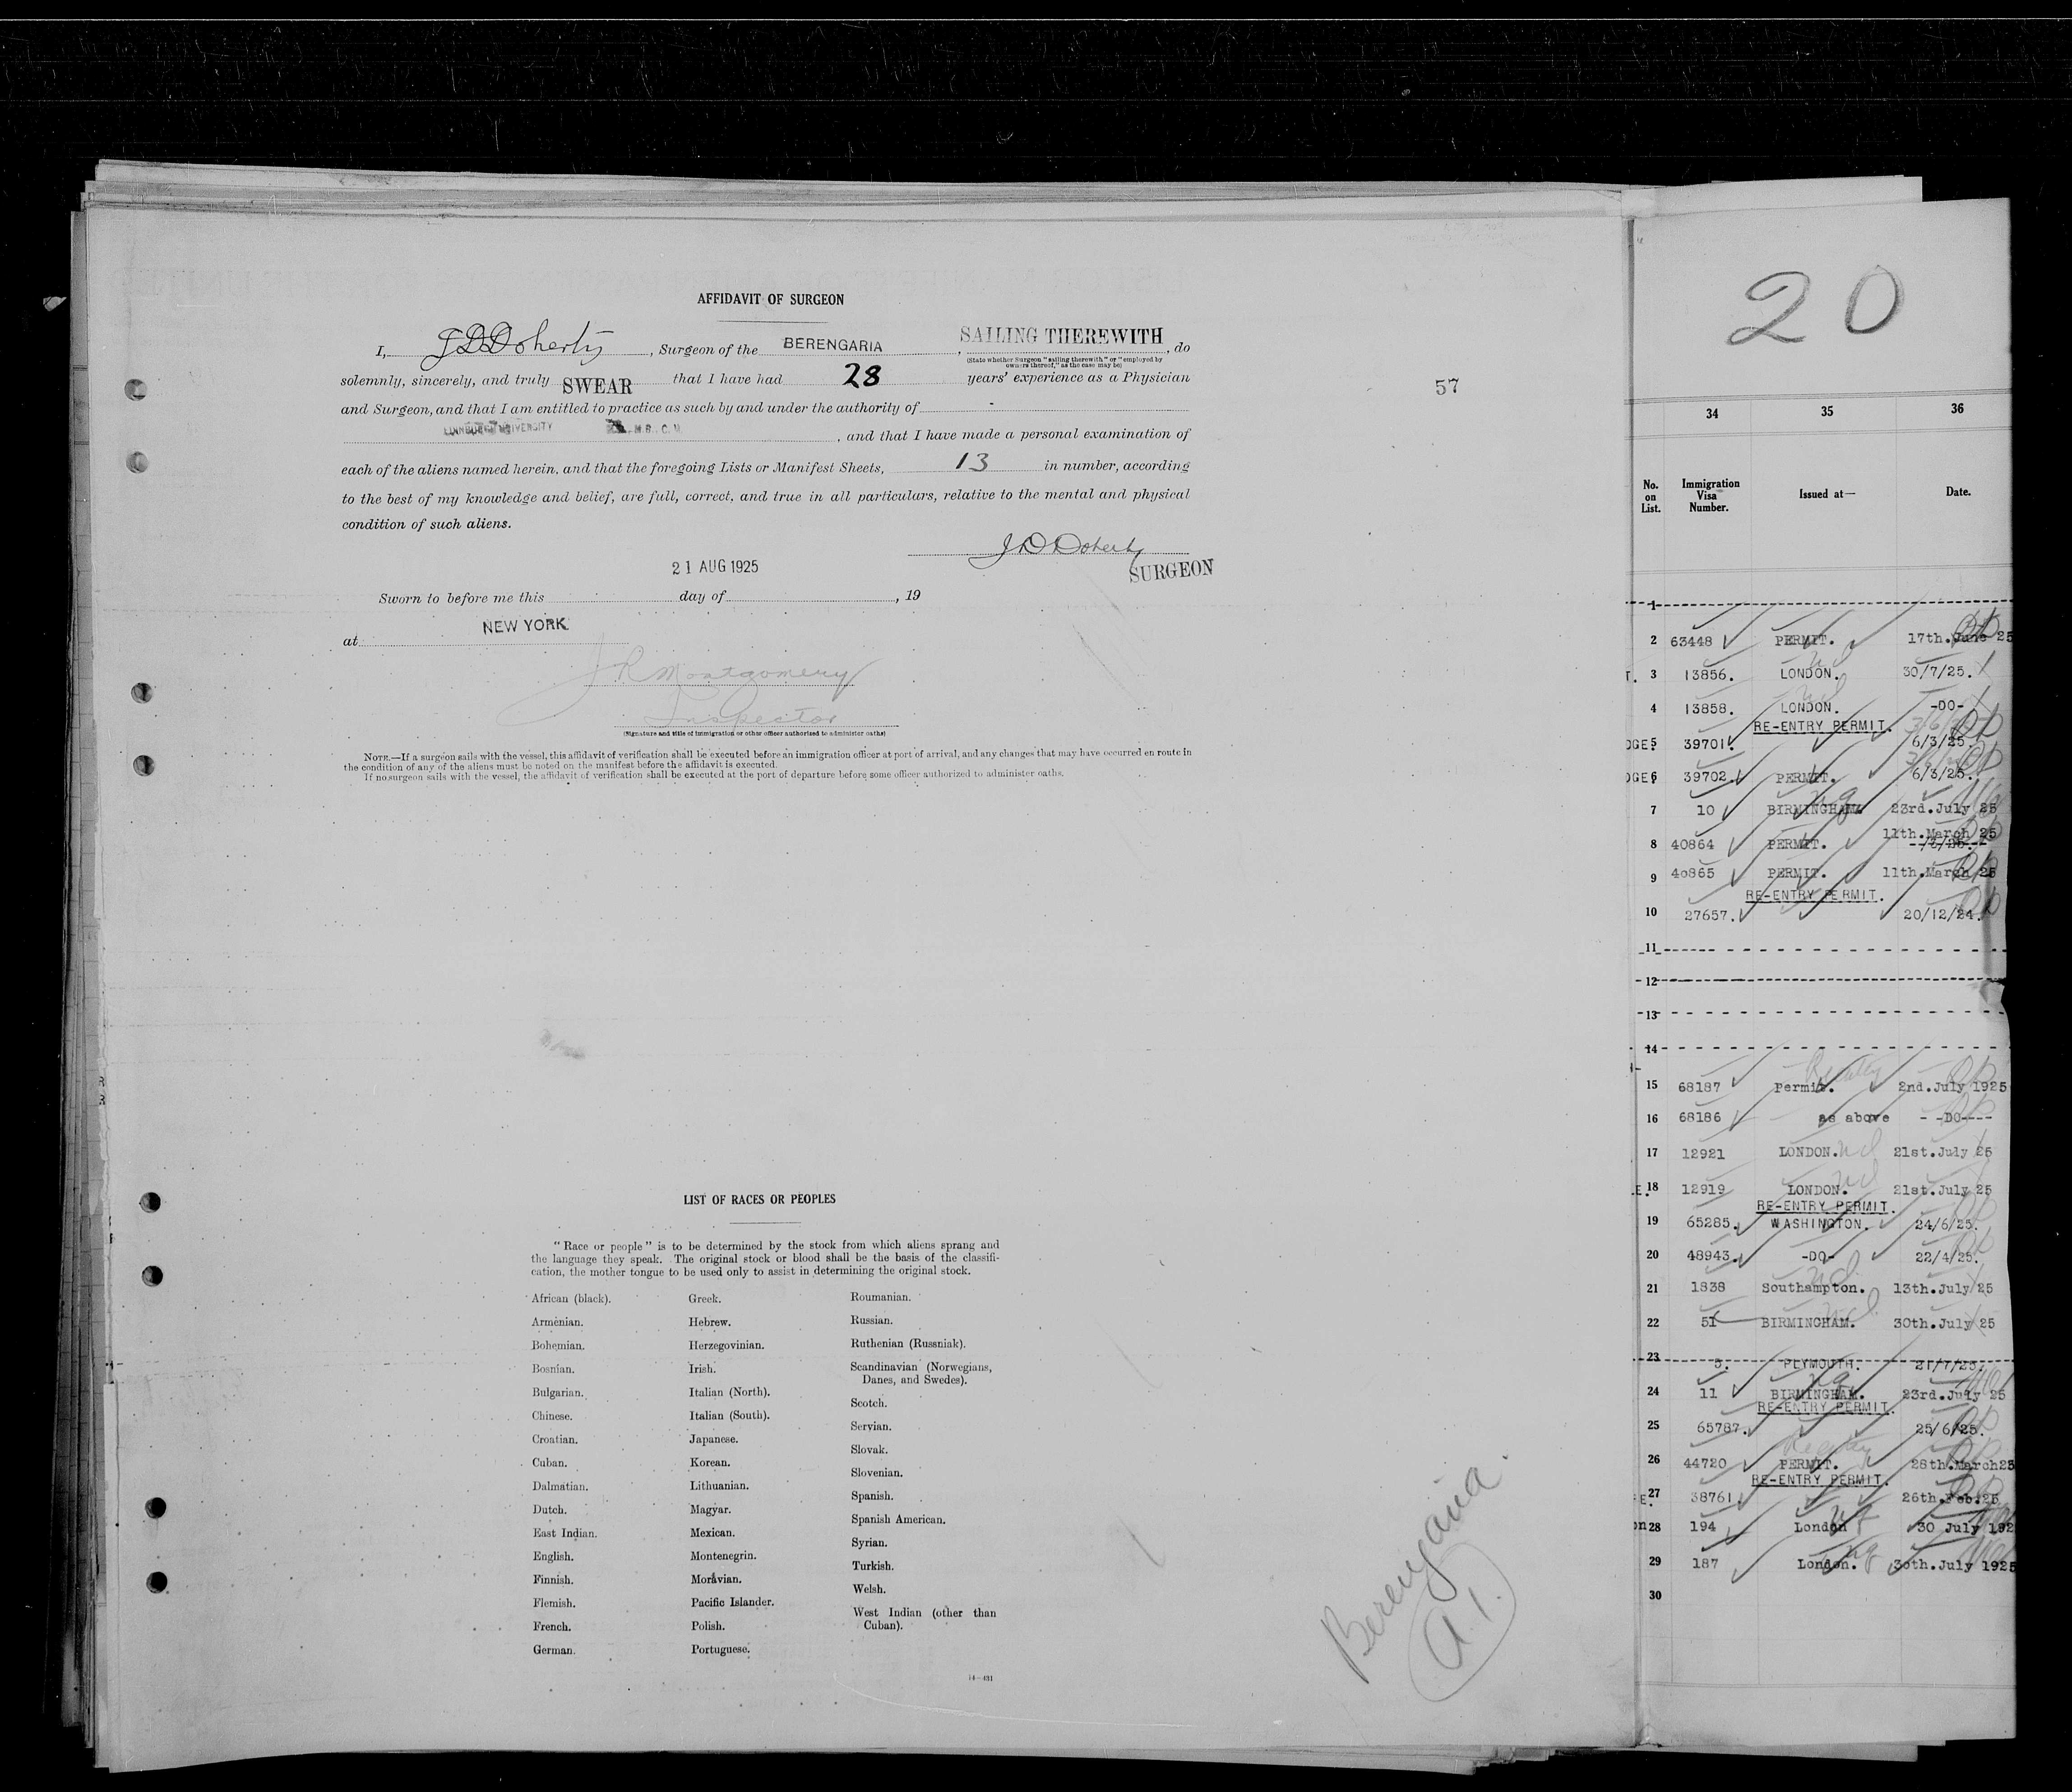 AFFIDAVIT OF SURGEON
I, J D Doherty, Surgeon of the BERENGARIA, SAILING THEREWITH, do
(State whether Surgeon "sailing therewith" or "employed by
owners thereof," as the case may be)
solemnly, sincerely, and truly SWEAR that I have had 28 years' experience as a Physician
and Surgeon, and that I am entitled to practice as such by and under the authority of
UNIVERSITY , and that I have made a personal examination of
each of the aliens named herein, and that the foregoing Lists or Manifest Sheets, 13 in number, according
to the best of my knowledge and belief, are full, correct, and true in all particulars, relative to the mental and physical
condition of such aliens.
J D Doherty
SURGEON
21 AUG 1925
Sworn to before me this day of , 19
NEW YORK
at
J R Montgomery
Inspector
(Signature and title of immigration or other officer authorized to administer oaths)
NOTE.—If a surgeon sails with the vessel, this affidavit of verification shall be executed before an immigration officer at port of arrival, and any changes that may have occurred en route in
the condition of any of the aliens must be noted on the manifest before the affidavit is executed.
If no surgeon sails with the vessel, the affidavit of verification shall be executed at the port of departure before some officer authorized to administer oaths.
57
LIST OF RACES OR PEOPLES
"Race or people" is to be determined by the stock from which aliens sprang and
the language they speak. The original stock or blood shall be the basis of the classifi-
cation, the mother tongue to be used only to assist in determining the original stock.
African (black).
Armenian.
Bohemian.
Bosnian.
Bulgarian.
Chinese.
Croatian.
Cuban.
Dalmatian.
Dutch.
East Indian.
English.
Finnish.
Flemish.
French.
German.
Greek.
Hebrew.
Herzegovinian.
Irish.
Italian (North).
Italian (South).
Japanese.
Korean.
Lithuanian.
Magyar.
Mexican.
Montenegrin.
Moravian.
Pacific Islander.
Polish.
Portuguese.
Roumanian.
Russian.
Ruthenian (Russniak).
Scandinavian (Norwegians,
Danes, and Swedes).
Scotch.
Servian.
Slovak.
Slovenian.
Spanish.
Spanish American.
Syrian.
Turkish.
Welsh.
West Indian (other than
Cuban).
14—481
Berengaria.
a.1.
20
34 35 36
No. on List. Immigration Visa Number. Issued at— Date.
1
2 63448 PERMIT. 17th.June 25
3 13856. LONDON. 30/7/25.
4 13858. LONDON. -DO-
RE-ENTRY PERMIT.
5 39701. 6/3/25.
6 39702. PERMIT. 6/3/25.
7 10 BIRMINGHAM 23rd.July 25
11th.March 25
8 40864 PERMIT.
9 40865 PERMIT. 11th.March 25
RE-ENTRY PERMIT.
10 27657. 20/12/24.
11
12
13
14
15 68187 Permit. 2nd.July 1925
16 68186 as above --DO----
17 12921 LONDON. 21st.July 25
18 12919 LONDON. 21st.July 25
RE-ENTRY PERMIT.
19 65285. WASHINGTON. 24/6/25.
20 48943. -DO- 22/4/25.
21 1838 Southampton. 13th.July 25
22 51 BIRMINGHAM. 30th.July 25
23 5. PLYMOUTH. 21/7/25.
24 11 BIRMINGHAM. 23rd.July 25
RE-ENTRY PERMIT.
25 65787. 25/6/25.
26 44720 PERMIT. 28th.March25
RE-ENTRY PERMIT.
27 38761. 26th.Feb.25
28 194 London 30 July 192
29 187 London. 30th.July 1925
30